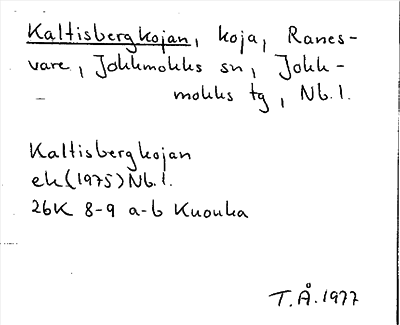 Kaltisbergkojan, koja, Ranes-
vare, Jokkmokks sn, Jokk-
mokks tg, Nb.l.
Kaltisbergkojan
ek(1975)Nb.l.
26K 8-9 a-b Kuouka
T.Å.1977